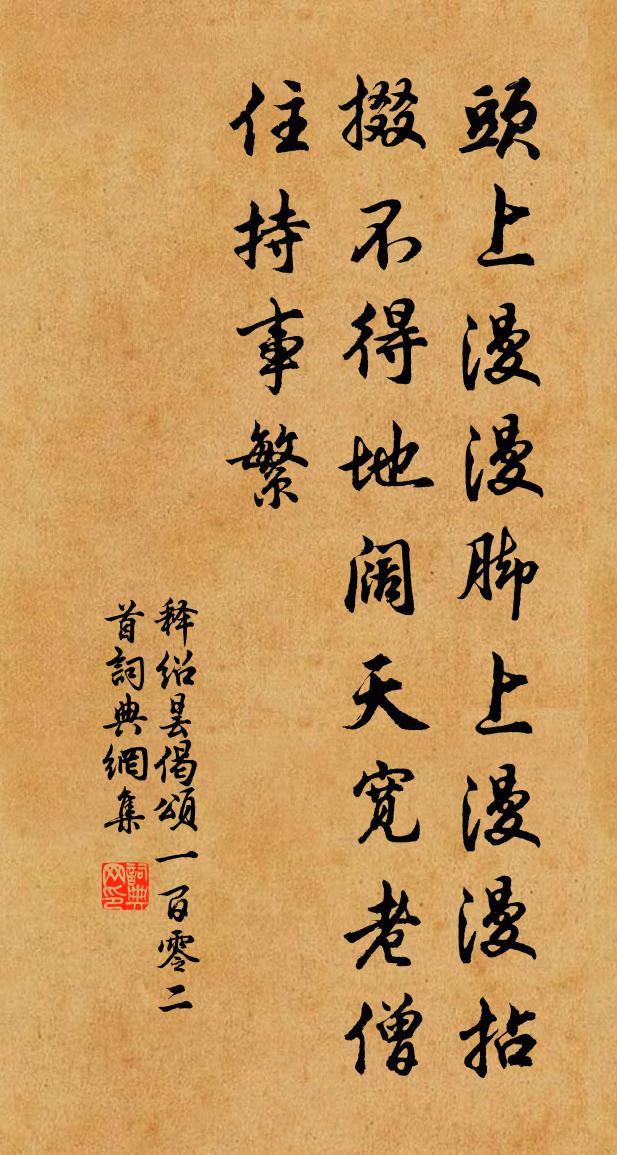 頭上漫漫脚上漫漫拈
掇不得地阔天宽老僧
住持事繁
释绍昙偈頌一百零二
首詞典網集
詞典网印